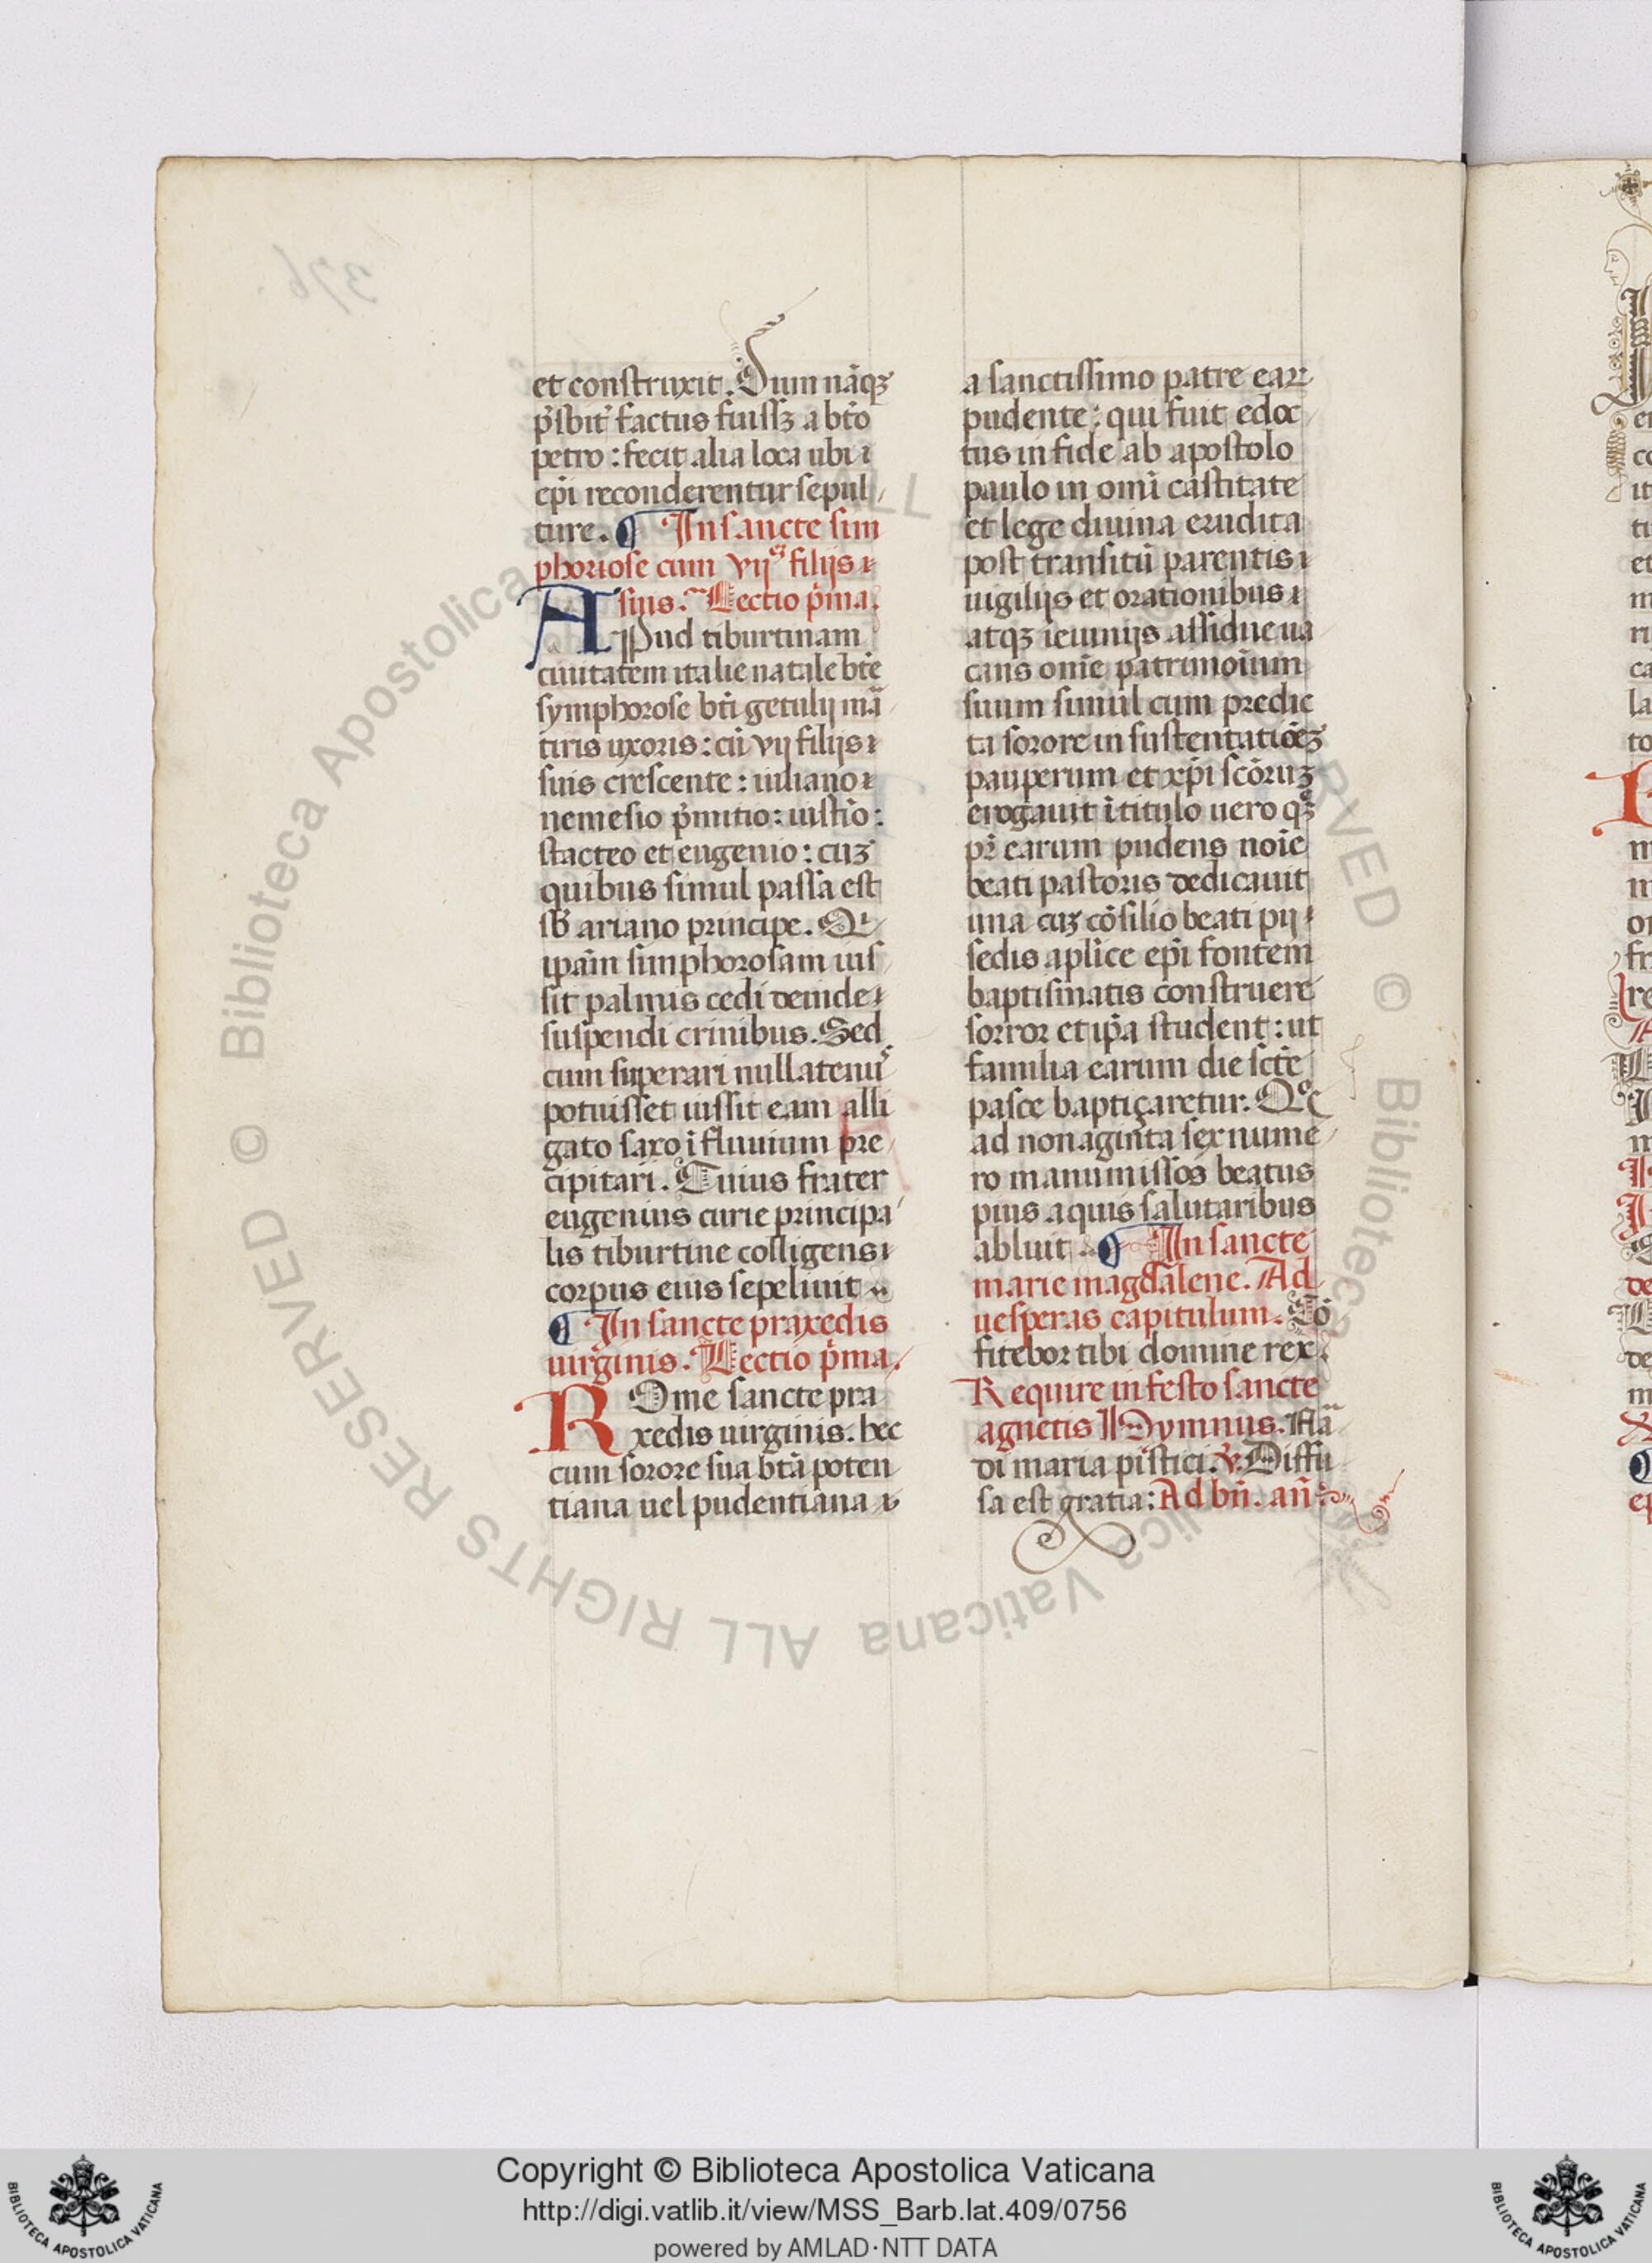 et construxit. Dum nāqꝫ
p̄sbit̄ factus fuissꝫ a bt̄o
petro : fecit alia loca ubi
ep̄i reconderentur sepul
ture. ¶ In sancte sim
phoriose cum vijᵉ filijs
suis. Lectio p̄ma.
APud tiburtinam
ciuitatem italie natale bt̄e
symphorose bt̄i getulij mā
tiris uxoris : cū vij filijs
suis crescente : iuliano
nemesio p̄mitio : iustīo :
stacteo et eugenio : cuꝫ
quibus simul passa est
sb̄ ariano principe. Qi
ipām simphorosam ius
sit palmis cedi deinde
suspendi crinibus. Sed
cum superari nullatenuˢ
potuisset iussit eam alli
gato saxo ī fluuium pre
cipitari. Cuius frater
eugenius curie principa
lis tiburtine colligens
corpus eius sepeliuit
¶ In sancte praxedis
uirginis. Lectio p̄ma.
ROme sancte pra
xedis uirginis. hec
cum sorore sua bt̄a poten
tiana uel pudentiana
a sanctissimo patre eaꝝ
pudente : qui fuit edoc
tus in fide ab apostolo
paulo in om̄i castitate
et lege diuina erudita
post transitū parentis
uigilijs et orationibus
atqꝫ ieiunijs assidue ua
cans om̄e patrimoīum
suum simul cum predic
ta sorore in sustentatiōeꝫ
pauperum et xp̄i scōruꝫ
erogauit ī titulo uero qᵉꝫ
pr̄ earum pudens noīe
beati pastoris dedicauit
una cuꝫ cōsilio beati pij
sedis aplice ep̄i fontem
baptismatis construere
sorror et ip̄a student : ut
familia earum die scte
pasce baptiçaretur. Qᵒꝫ
ad nonaginta sex nume
ro manumissos beatus
pius aquis salutaribus
abluit. ¶ In sancte
marie magdalene. Ad
uesperas capitulum. Cō
fitebor tibi domine rex.
Require in festo sancte
agnetis ij Dymnus. Nā
di maria pistici. ℣. Diffu
sa est gratia : Ad bn̄. an̄ :
Copyright © Biblioteca Apostolica Vaticana
http://digi.vatlib.it/view/MSS_Barb.lat.409/0756
powered by AMLAD·NTT DATA